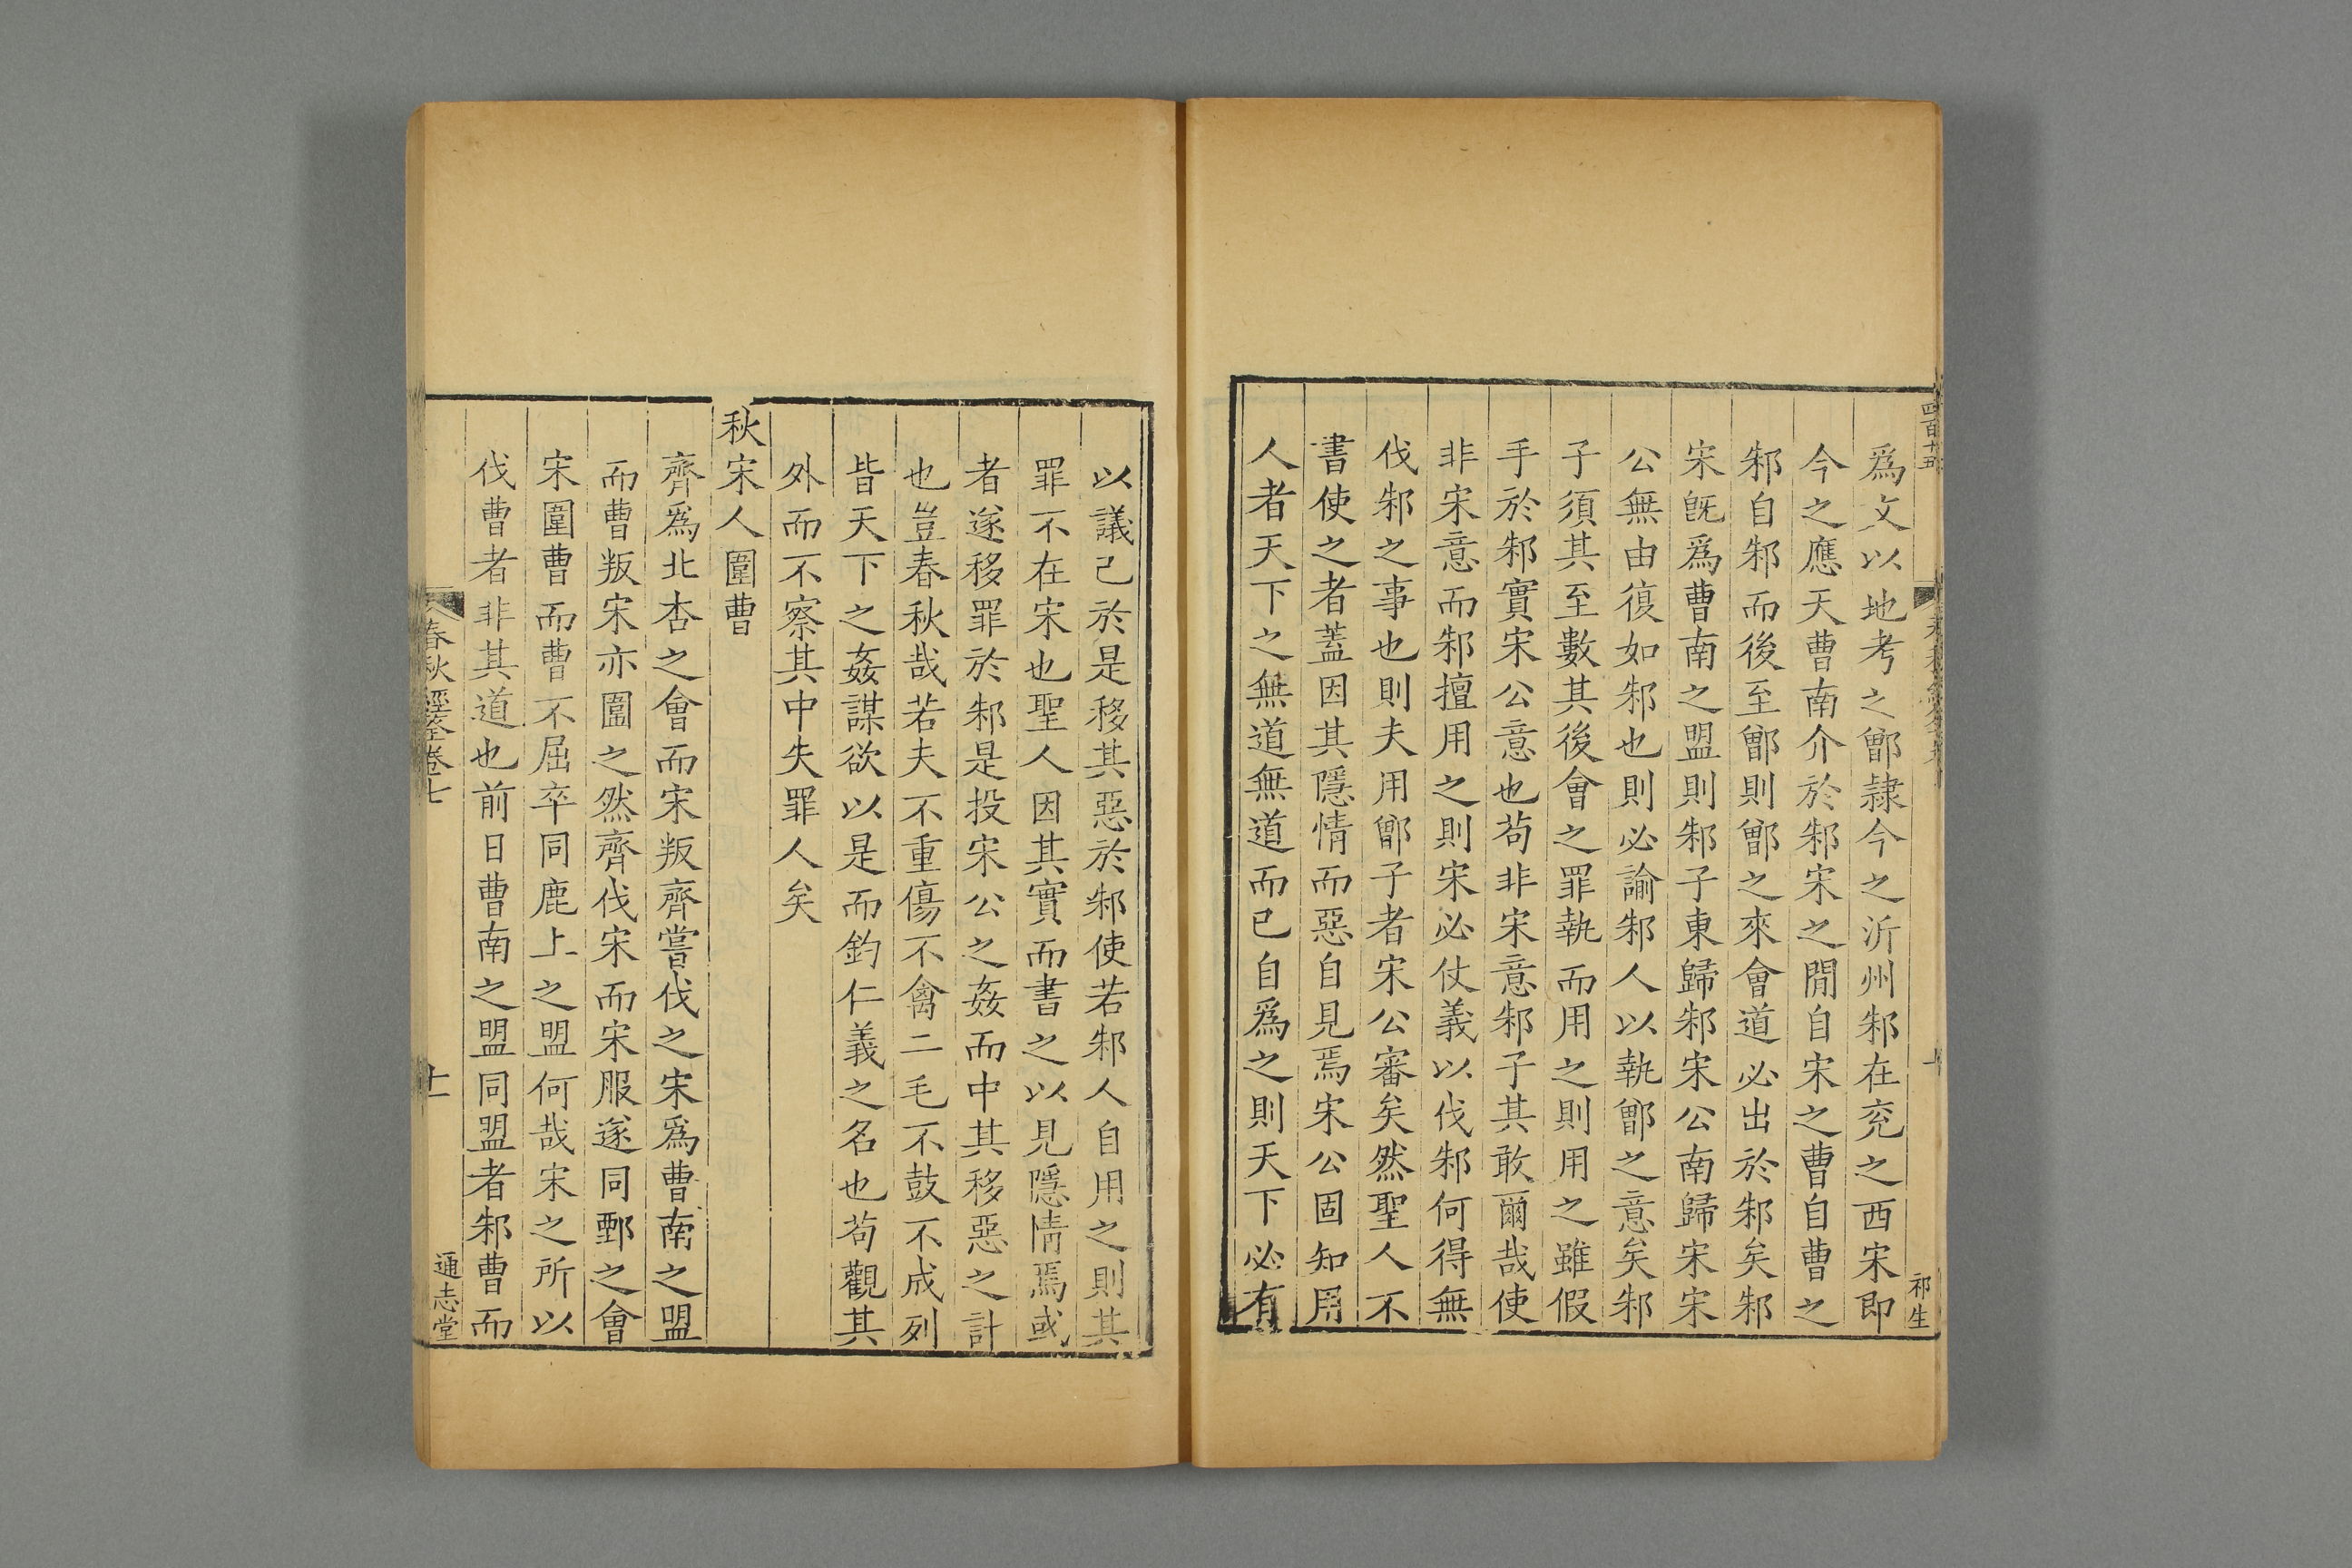 四百十五
祁生
爲文以地考之鄫隷今之沂州邾在兖之西宋即
今之應天曹南介於邾宋之閒自宋之曹自曹之
邾自邾而後至鄫則鄫之來會道必出於邾矣邾
宋旣爲曹南之盟則邾子東歸邾宋公南歸宋宋
公無由復如邾也則必諭邾人以執鄫之意矣邾
子須其至數其後會之罪執而用之則用之雖假
手於邾實宋公意也茍非宋意邾子其敢爾哉使
非宋意而邾擅用之則宋必仗義以伐邾何得無
伐邾之事也則夫用鄫子者宋公審矣然聖人不
書使之者蓋因其隱情而惡自見焉宋公固知用
人者天下之無道無道而已自爲之則天下必有
以議己於是移其惡於邾使若邾人自用之則其
罪不在宋也聖人因其實而書之以見隱情焉或
者遂移罪於邾是投宋公之姦而中其移惡之計
也豈春秋哉若夫不重傷不禽二毛不鼓不成列
皆天下之姦謀欲以是而釣仁義之名也茍觀其
外而不察其中失罪人矣
秋宋人圍曹
齊爲北杏之會而宋叛齊嘗伐之宋爲曹南之盟
而曹叛宋亦圍之然齊伐宋而宋服遂同鄄之會
宋圍曹而曹不屈卒同鹿上之盟何哉宋之所以
伐曹者非其道也前日曹南之盟同盟者邾曹而
春秋經筌卷七
十一
通志堂